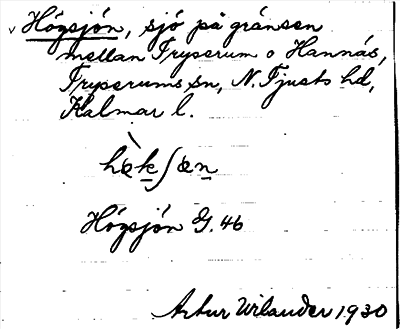 Högsjön, sjö på gränsen
mellan Tryserum o Hannäs,
Tryserums sn, N. Tjusts hd,
Kalmar l.
hækʃæn
Högsjön G. 46
Artur Wilander 1930